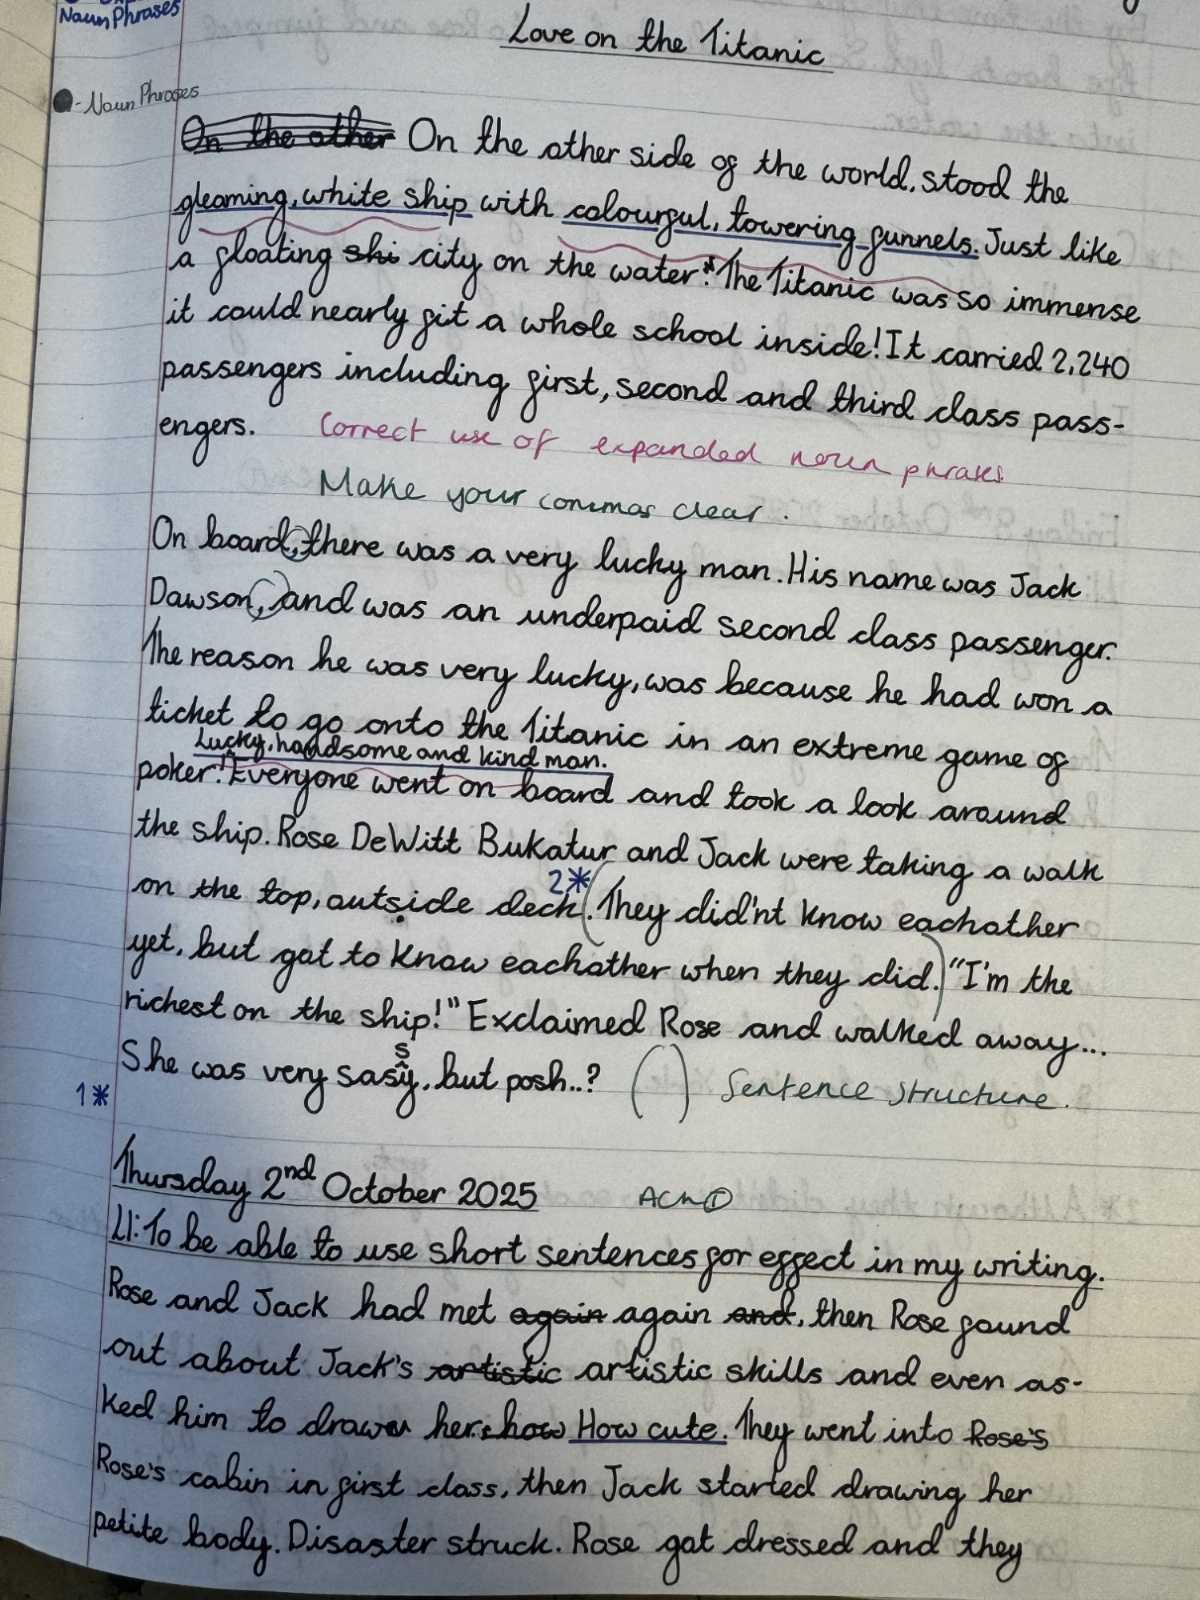 Noun Phrases
Love on the Titanic
- Noun Phrases
On the other On the other side of the world, stood the
gleaming, white ship with colourful, towering funnels. Just like
a floating shi city on the water! The Titanic was so immense
it could nearly fit a whole school inside! It carried 2,240
passengers including first, second and third class pass-
engers. Correct use of expanded noun phrases.
Make your commas clear.
On board, there was a very lucky man. His name was Jack
Dawson, and was an underpaid second class passenger.
The reason he was very lucky, was because he had won a
ticket to go onto the Titanic in an extreme game of
Lucky, handsome and kind man.
poker! Everyone went on board and took a look around
the ship. Rose DeWitt Bukatur and Jack were taking a walk
on the top, outside deck. 2* They did'nt know eachother
yet, but got to know eachother when they did. "I'm the
richest on the ship!" Exclaimed Rose and walked away...
She was very sassy, but posh..? ( ) Sentence structure.
1*
Thursday 2nd October 2025 Ach ①
LI: To be able to use short sentences for effect in my writing.
Rose and Jack had met again again and, then Rose found
out about Jack's artistic artistic skills and even as-
ked him to draw her. how How cute. They went into Rose's
Rose's cabin in first class, then Jack started drawing her
petite body. Disaster struck. Rose got dressed and they